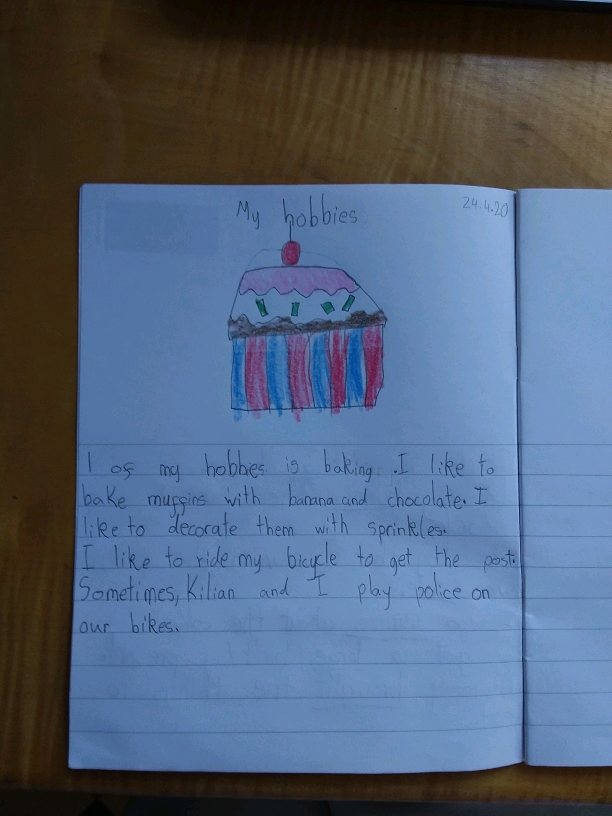 My hobbies
24.4.20
1 of my hobbes is baking. I like to
bake muffins with banana and chocolate. I
like to decorate them with sprinkles.
I like to ride my bicycle to get the post.
Sometimes, Kilian and I play police on
our bikes.